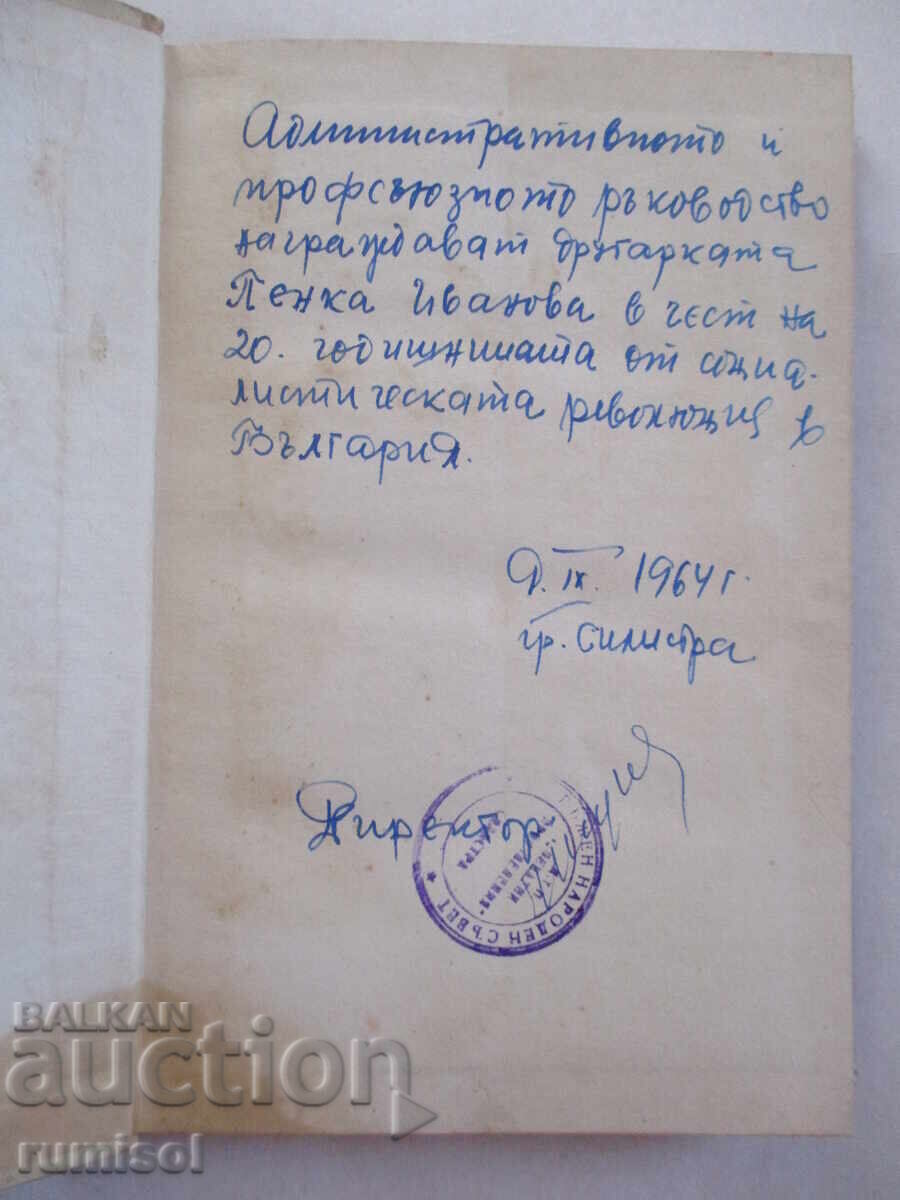 Административното и
профсъюзното ръководство
награждават другарката
Пенка Иванова в чест на
20. годишнината от социа-
листическата революция в
България.
9. IX. 1964 г.
гр. Силистра
Директор
НАРОДЕН СЪВЕТ
BALKAN
auction
rumisol